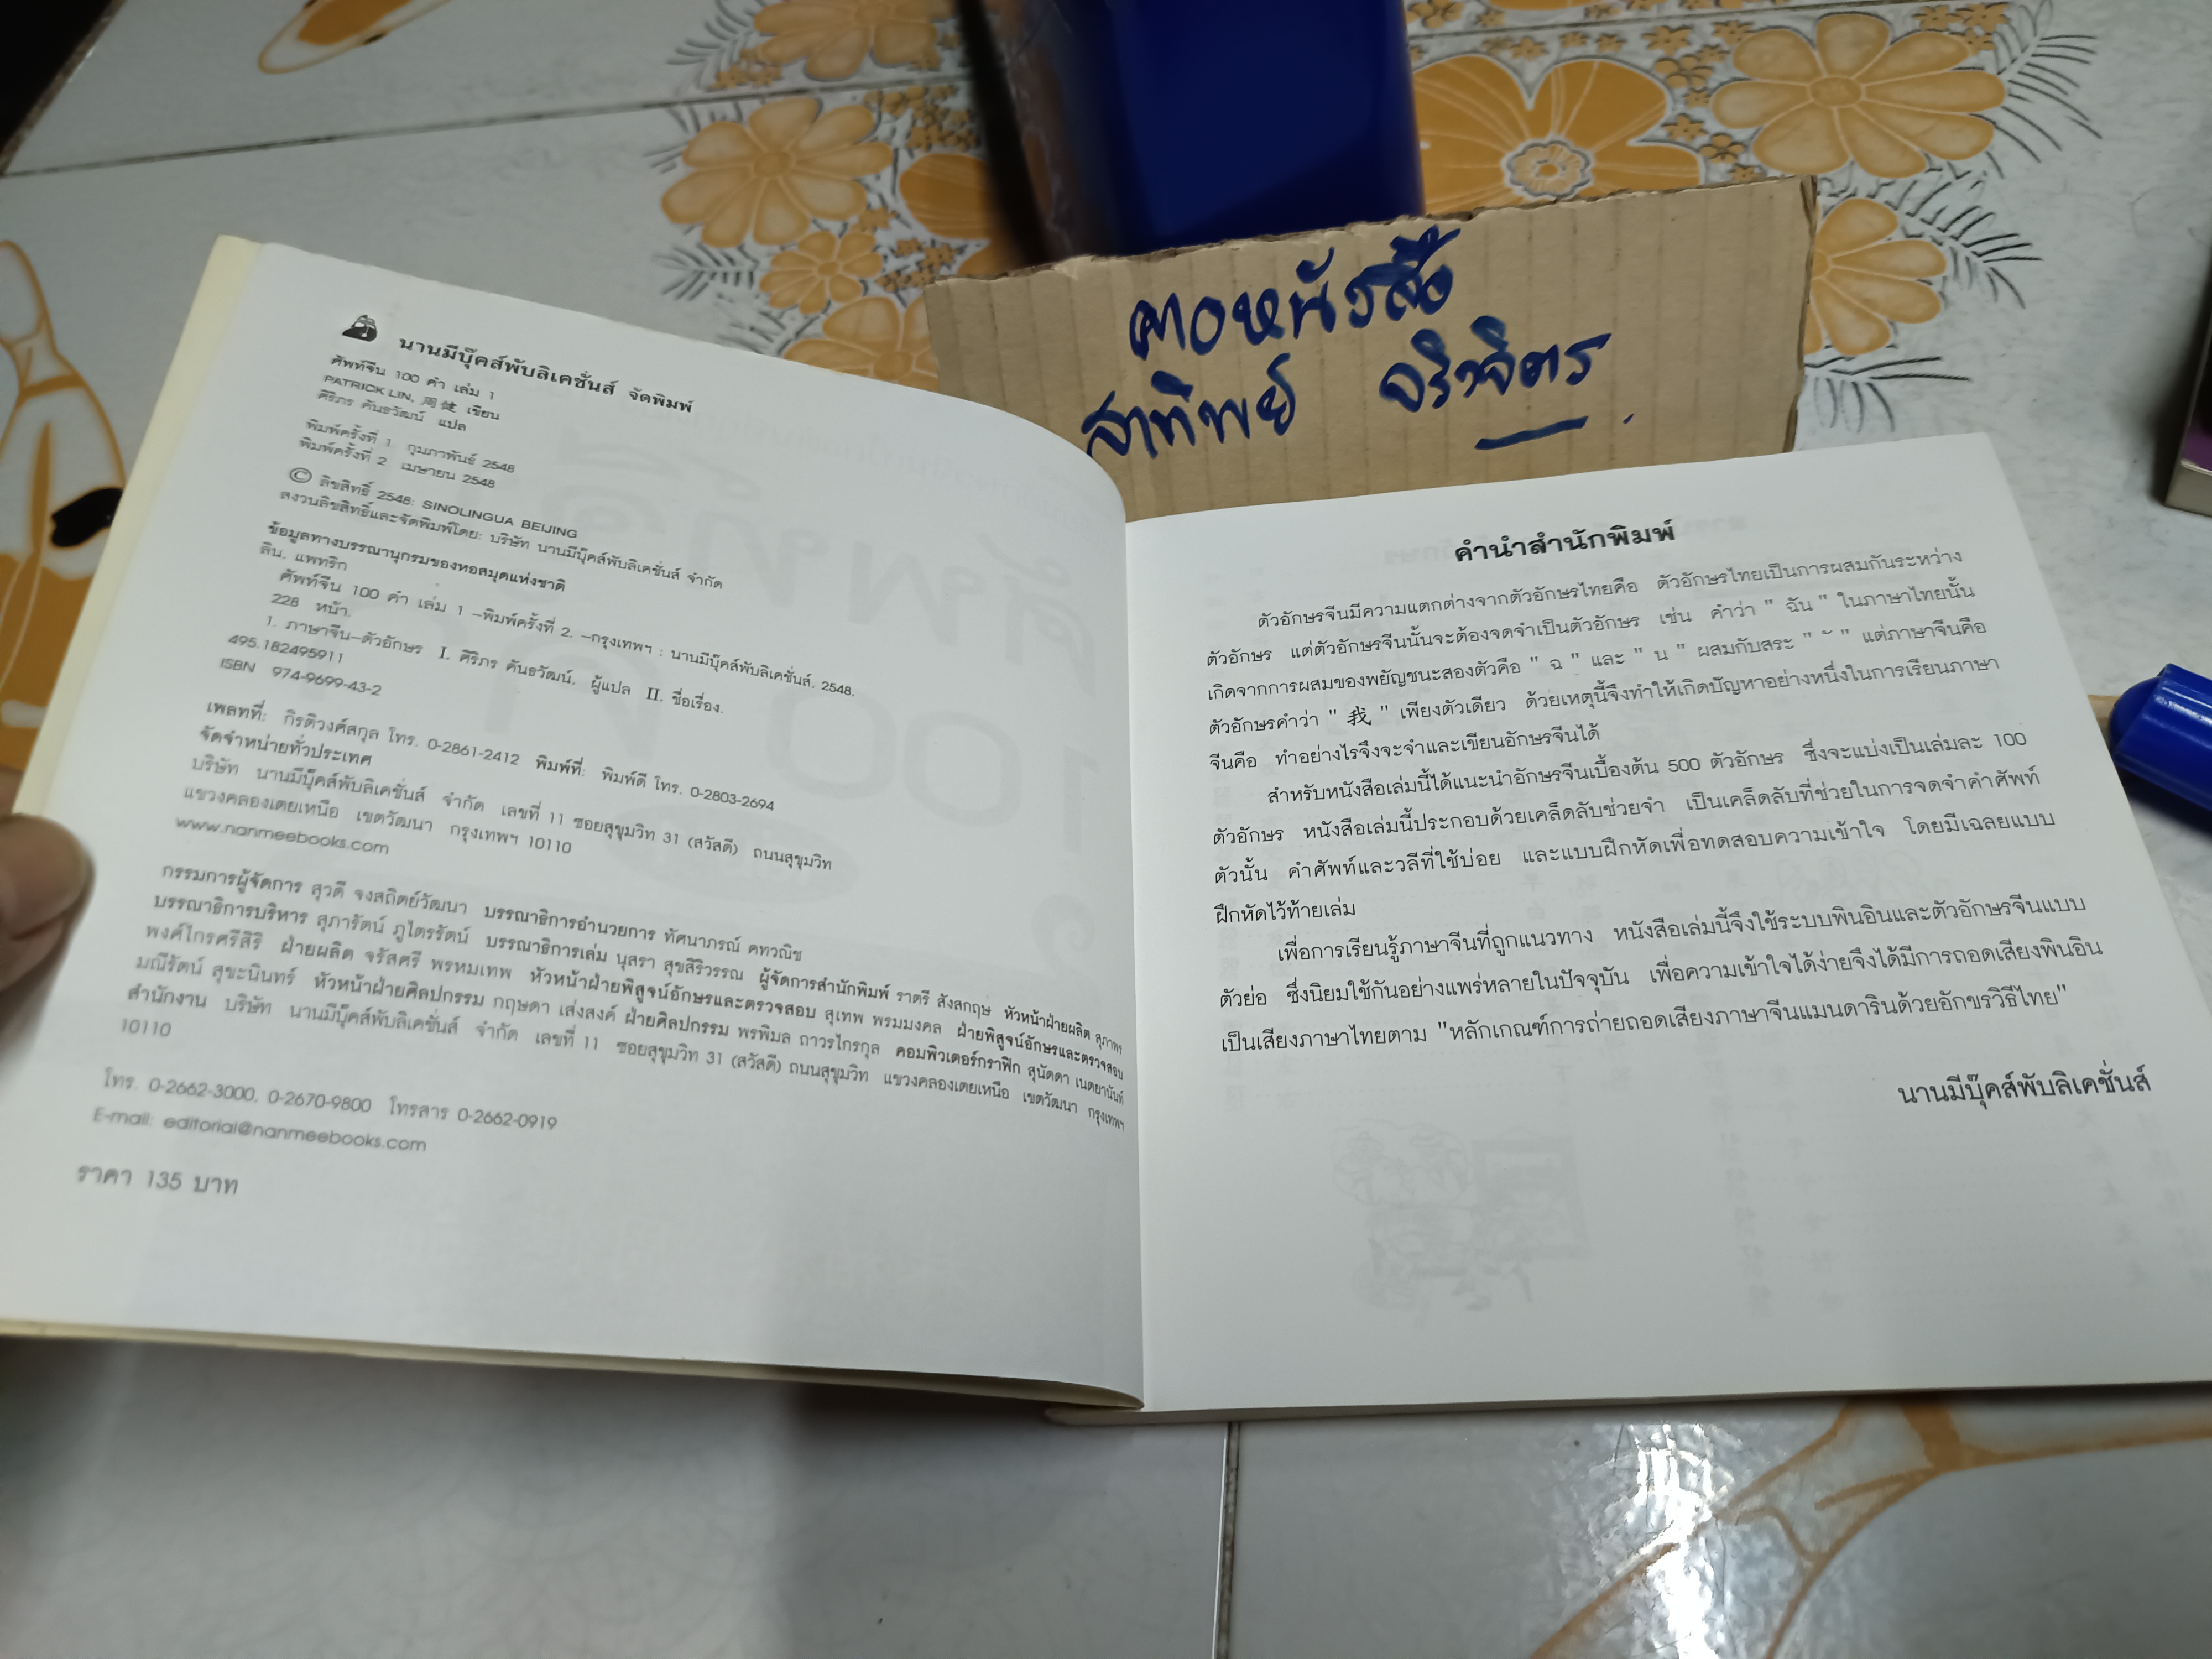 นานมีบุ๊คส์พับลิเคชั่นส์ จัดพิมพ์
ศัพท์จีน 100 คำ เล่ม 1
PATRICK LIN, 周健 เขียน
ศิริภร คันธวัฒน์ แปล
พิมพ์ครั้งที่ 1 กุมภาพันธ์ 2548
พิมพ์ครั้งที่ 2 เมษายน 2548
© ลิขสิทธิ์ 2548: SINOLINGUA BEIJING
สงวนลิขสิทธิ์และจัดพิมพ์โดย: บริษัท นานมีบุ๊คส์พับลิเคชั่นส์ จำกัด
ข้อมูลทางบรรณานุกรมของหอสมุดแห่งชาติ
ลิน, แพทริก
ศัพท์จีน 100 คำ เล่ม 1 –พิมพ์ครั้งที่ 2. –กรุงเทพฯ : นานมีบุ๊คส์พับลิเคชั่นส์, 2548.
228 หน้า.
1. ภาษาจีน–ตัวอักษร I. ศิริภร คันธวัฒน์, ผู้แปล II. ชื่อเรื่อง.
495.182495911
ISBN 974-9699-43-2
เพลทที่: กิรติวงศ์สกุล โทร. 0-2861-2412 พิมพ์ที่: พิมพ์ดี โทร. 0-2803-2694
จัดจำหน่ายทั่วประเทศ
บริษัท นานมีบุ๊คส์พับลิเคชั่นส์ จำกัด เลขที่ 11 ซอยสุขุมวิท 31 (สวัสดี) ถนนสุขุมวิท
แขวงคลองเตยเหนือ เขตวัฒนา กรุงเทพฯ 10110
www.nanmeebooks.com
กรรมการผู้จัดการ สุวดี จงสถิตย์วัฒนา บรรณาธิการอำนวยการ ทัศนาภรณ์ คทวณิช
บรรณาธิการบริหาร สุภารัตน์ ภูไตรรัตน์ บรรณาธิการเล่ม นุสรา สุขสิริวรรณ ผู้จัดการสำนักพิมพ์ ราตรี สังสกฤษ หัวหน้าฝ่ายผลิต สุภาพร
พงศ์ไกรศรีสิริ ฝ่ายผลิต จรัสศรี พรหมเทพ หัวหน้าฝ่ายพิสูจน์อักษรและตรวจสอบ สุเทพ พรมมงคล ฝ่ายพิสูจน์อักษรและตรวจสอบ
มณีรัตน์ สุขะนินทร์ หัวหน้าฝ่ายศิลปกรรม กฤษดา เส่งสงค์ ฝ่ายศิลปกรรม พรพิมล ถาวรไกรกุล คอมพิวเตอร์กราฟิก สุนัดดา เนตยานันท์
สำนักงาน บริษัท นานมีบุ๊คส์พับลิเคชั่นส์ จำกัด เลขที่ 11 ซอยสุขุมวิท 31 (สวัสดี) ถนนสุขุมวิท แขวงคลองเตยเหนือ เขตวัฒนา กรุงเทพฯ
10110
โทร. 0-2662-3000, 0-2670-9800 โทรสาร 0-2662-0919
E-mail: editorial@nanmeebooks.com
ราคา 135 บาท
หนังสือ
สาทิพย์
คำนำสำนักพิมพ์
ตัวอักษรจีนมีความแตกต่างจากตัวอักษรไทยคือ ตัวอักษรไทยเป็นการผสมกันระหว่าง
ตัวอักษร แต่ตัวอักษรจีนนั้นจะต้องจดจำเป็นตัวอักษร เช่น คำว่า " ฉัน " ในภาษาไทยนั้น
เกิดจากการผสมของพยัญชนะสองตัวคือ " ฉ " และ " น " ผสมกับสระ " ั " แต่ภาษาจีนคือ
ตัวอักษรคำว่า " 我 " เพียงตัวเดียว ด้วยเหตุนี้จึงทำให้เกิดปัญหาอย่างหนึ่งในการเรียนภาษา
จีนคือ ทำอย่างไรจึงจะจำและเขียนอักษรจีนได้
สำหรับหนังสือเล่มนี้ได้แนะนำอักษรจีนเบื้องต้น 500 ตัวอักษร ซึ่งจะแบ่งเป็นเล่มละ 100
ตัวอักษร หนังสือเล่มนี้ประกอบด้วยเคล็ดลับช่วยจำ เป็นเคล็ดลับที่ช่วยในการจดจำคำศัพท์
ตัวนั้น คำศัพท์และวลีที่ใช้บ่อย และแบบฝึกหัดเพื่อทดสอบความเข้าใจ โดยมีเฉลยแบบ
ฝึกหัดไว้ท้ายเล่ม
เพื่อการเรียนรู้ภาษาจีนที่ถูกแนวทาง หนังสือเล่มนี้จึงใช้ระบบพินอินและตัวอักษรจีนแบบ
ตัวย่อ ซึ่งนิยมใช้กันอย่างแพร่หลายในปัจจุบัน เพื่อความเข้าใจได้ง่ายจึงได้มีการถอดเสียงพินอิน
เป็นเสียงภาษาไทยตาม "หลักเกณฑ์การถ่ายถอดเสียงภาษาจีนแมนดารินด้วยอักขรวิธีไทย"
นานมีบุ๊คส์พับลิเคชั่นส์